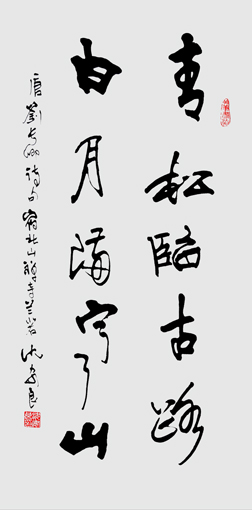 青松臨古路
白月滿寒山
唐劉長卿詩句宿北山禅寺兰若